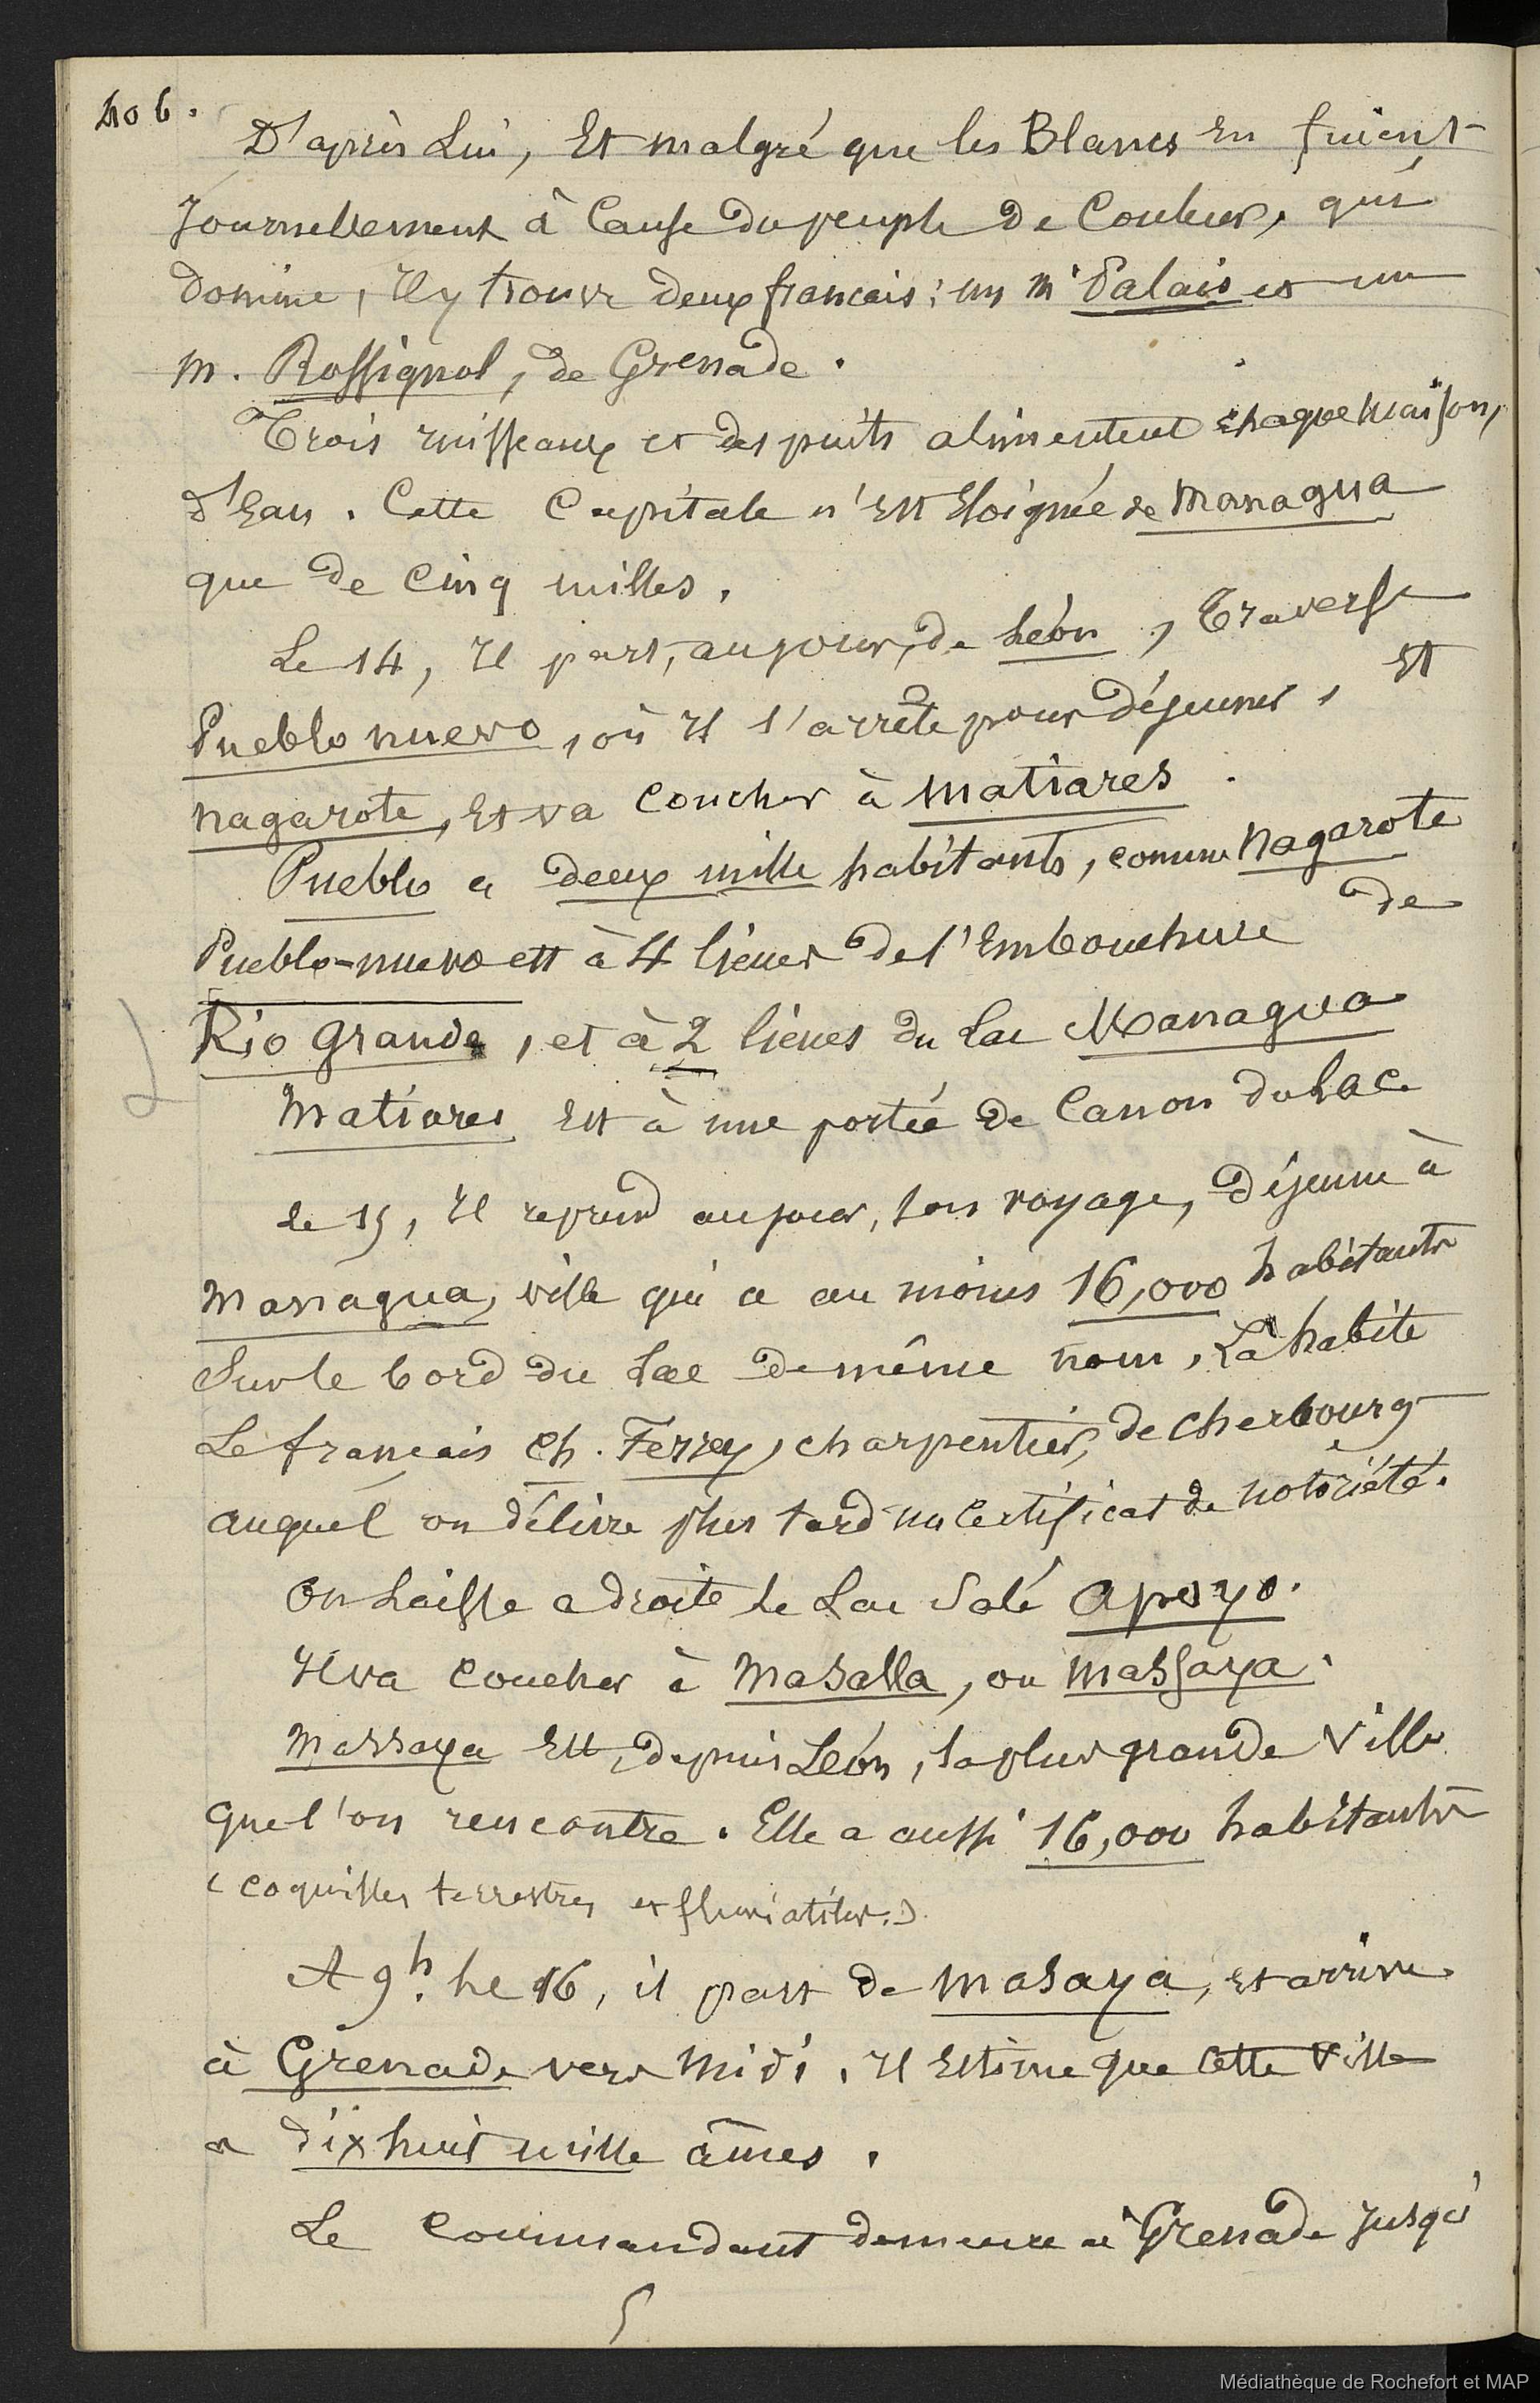 406.
D'après Lui, Et malgré que les Blancs En fuient
Journellement à Cause du peuple de Couleur, qui
domine, Il y trouve deux français : un Mr Palais et un
M. Rossignol, de Grenade.
Trois ruisseaux et des puits alimentent chaque maison,
d'Eau. Cette Capitale n'Est Eloignée de Managua
que de Cinq milles.
Le 14, Il part, au jour, de Léon, Traverse
Pueblo nuevo, où Il s'arrête pour Déjeuner, Et
nagarote, Et va Coucher à Matiares.
Pueblo a deux mille habitants, comme Nagarote
Pueblo-nuevo est à 4 lieues de l'Embouchure de
Rio Grande, et à 2 lieues du Lac Managua
Matiares Est à une portée de Canon du Lac
Le 15, Il reprend au jour, son voyage, Déjeune à
Managua, ville qui a au moins 16,000 habitants
Sur le bord du Lac de même nom, Là habite
Le français Ch. Ferrey, charpentier, de Cherbourg
auquel on délivre plus tard un Certificat de notoriété.
On Laisse a droite Le Lac Salé Apoyo.
Il va Coucher à Masalla, ou Massaya.
Massaya Est, depuis Léon, la plus grande Ville
que l'on rencontre. Elle a aussi 16,000 habitants
(Coquilles terrestres et fluviatiles.)
A 9h. Le 16, il part de Masaya, Et arrive
à Grenade vers Midi. Il Estime que Cette Ville
a dix huit mille âmes.
Le Commandant demeure à Grenade Jusqu'
Médiathèque de Rochefort et MAP